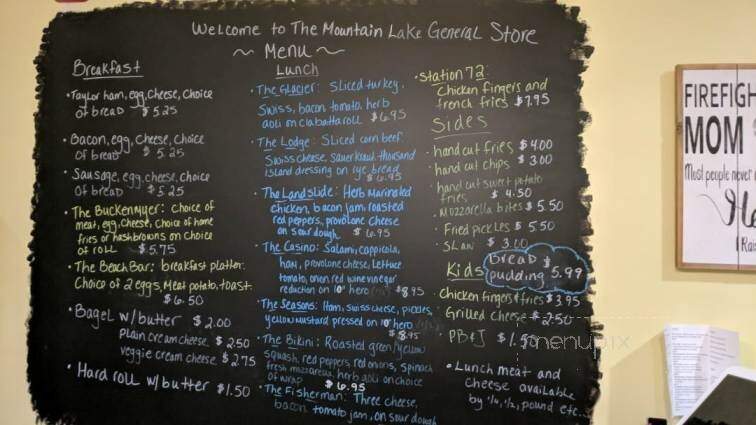 Welcome to The Mountain Lake General Store
~ Menu ~
Breakfast
• Taylor ham, egg, cheese, choice
of bread $5.25
• Bacon, egg, cheese, choice
of bread $5.25
• Sausage, egg, cheese, choice
of bread $5.25
• The Buckenmyer: choice of
meat, egg, cheese, choice of home
fries or hashbrowns on choice
of roll $5.75
• The Beach Bar: breakfast platter.
Choice of 2 eggs, meat, potato, toast.
$6.50
• Bagel w/butter $2.00
plain cream cheese $2.50
veggie cream cheese $2.75
• Hard roll w/butter $1.50
Lunch
• The Glacier: Sliced turkey,
Swiss, bacon, tomato, herb
aoli on ciabatta roll $6.95
• The Lodge: Sliced corn beef
Swiss cheese, Sauerkraut, thousand
island dressing on rye bread
$6.95
• The Landslide: Herb marinated
chicken, bacon jam, roasted
red peppers, provolone cheese
on sour dough $6.95
• The Casino: Salami, cappicola,
ham, provolone cheese, lettuce
tomato, onion, red wine vinegar
reduction on 10" hero $8.95
• The Seasons: Ham, swiss cheese, pickles,
yellow mustard pressed on 10" hero
$8.95
• The Bikini: Roasted green/yellow
squash, red peppers, red onions, spinach
fresh mozzarella, herb aoli on choice
of wrap $6.95
• The Fisherman: Three cheese,
bacon, tomato jam, on sour dough
• Station 72:
Chicken fingers and
french fries $7.95
Sides
• hand cut fries $4.00
• hand cut chips $3.00
• hand cut sweet potato
fries $4.50
• Mozzarella bites $5.50
• Fried pickles $5.50
• Slaw $3.00
Bread
pudding $5.99
Kids
Chicken fingers & fries $3.95
Grilled cheese $2.50
• PB&J $1.50
• Lunch meat and
cheese available
by 1/4, 1/2, pound etc...
FIREFIGH
MOM
Most people never
menupix